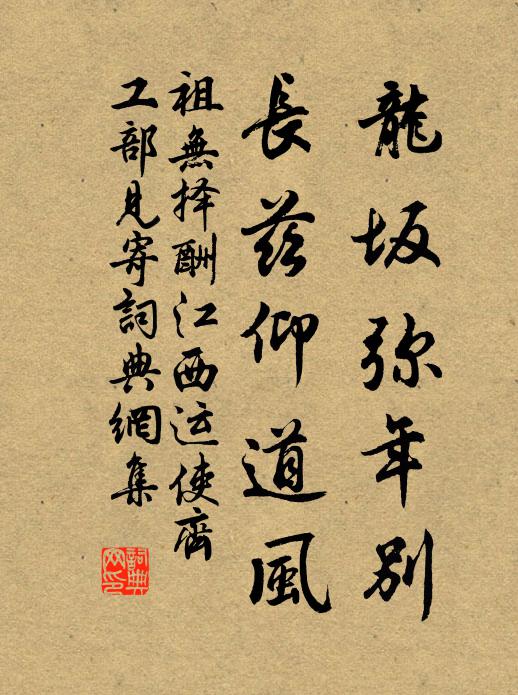 龍坂弥年别
長兹仰道風
祖無择酬江西运使齊
工部見寄詞典網集
詞典网印